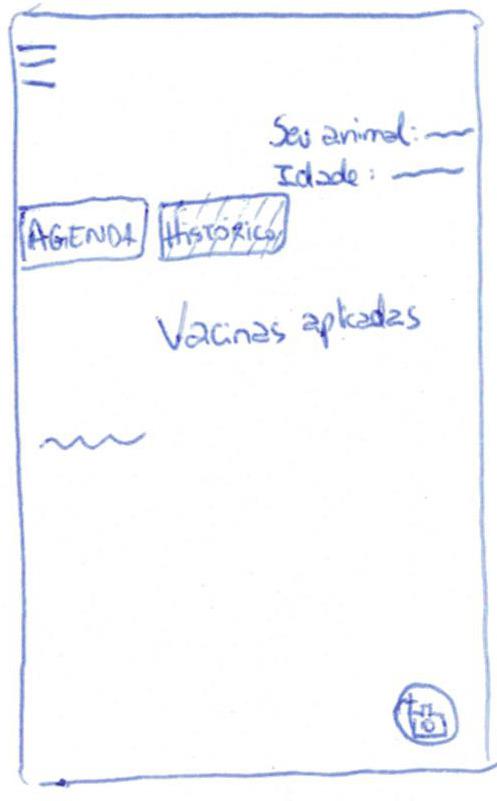 Seu animal:
Idade:
AGENDA HISTÓRICO
Vacinas aplicadas